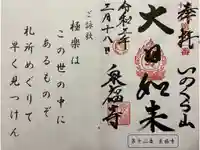 奉拝
いのくら山
大日如来
令和二年
三月十八日
泉福寺
第十二番 泉福寺
ご詠歌
極楽は
この世の中に
あるものぞ
札所めぐりて
早く見つけん